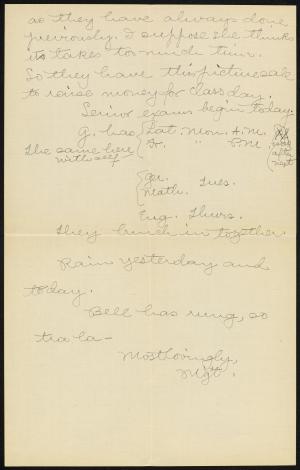 as they have always done
previously. I suppose she thinks
it takes too much time.
So they have this picture sale
to raise money for class day.
Senior exams begin today.
G. has Lat. Mon. A.M.
Fr. " P.M.
The same here
with self
week
after
next
Ger.
Math. Tues.
Eng. Thurs.
They bunch in together.
Rain yesterday and
today.
Bell has rung, so
tra la -
Most lovingly,
Mgt.